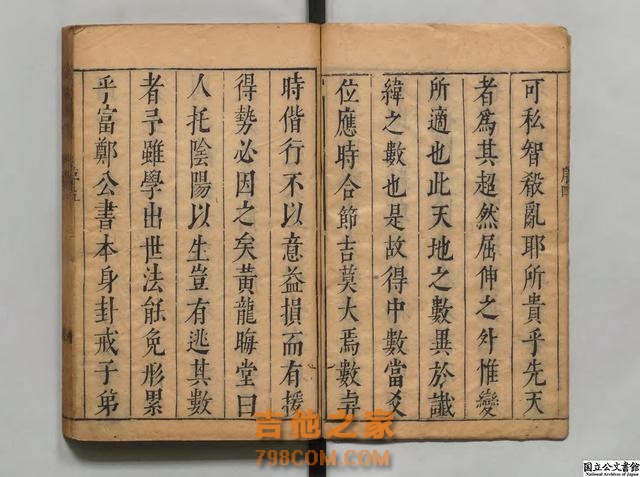 可私智殽亂耶所貴乎先天
者為其超然屈伸之外惟變
所適也此天地之數異於讖
緯之數也是故得中數當爻
位應時合節吉莫大焉數與
時偕行不以意益損而有援
得勢必因之矣黃龍晦堂曰
人托陰陽以生豈有逃其數
者乎雖學出世法能免形累
乎富鄭公書本身卦戒子弟
序四
吉他之家
798COM.COM
国立公文書館
National Archives of Japan